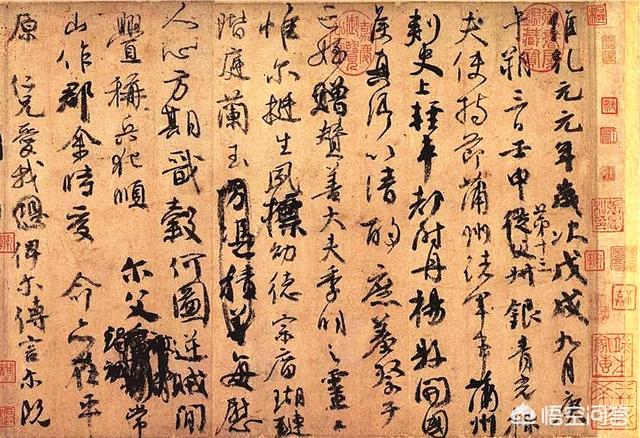 維乾元元年歲次戊戌九月庚
午朔三日壬申第十三從父叔銀青光祿
夫使持節蒲州諸軍事蒲州
刺史上輕車都尉丹楊縣開國
侯真卿以清酌庶羞祭于
亡姪贈贊善大夫季明之靈
惟爾挺生夙標幼德宗廟瑚璉
階庭蘭玉方憑積善每慰
人心方期戩穀何圖逆賊閒
釁稱兵犯順爾父竭誠常
山作郡余時受命亦在平
原仁兄愛我俾爾傳言爾既
悟空问答